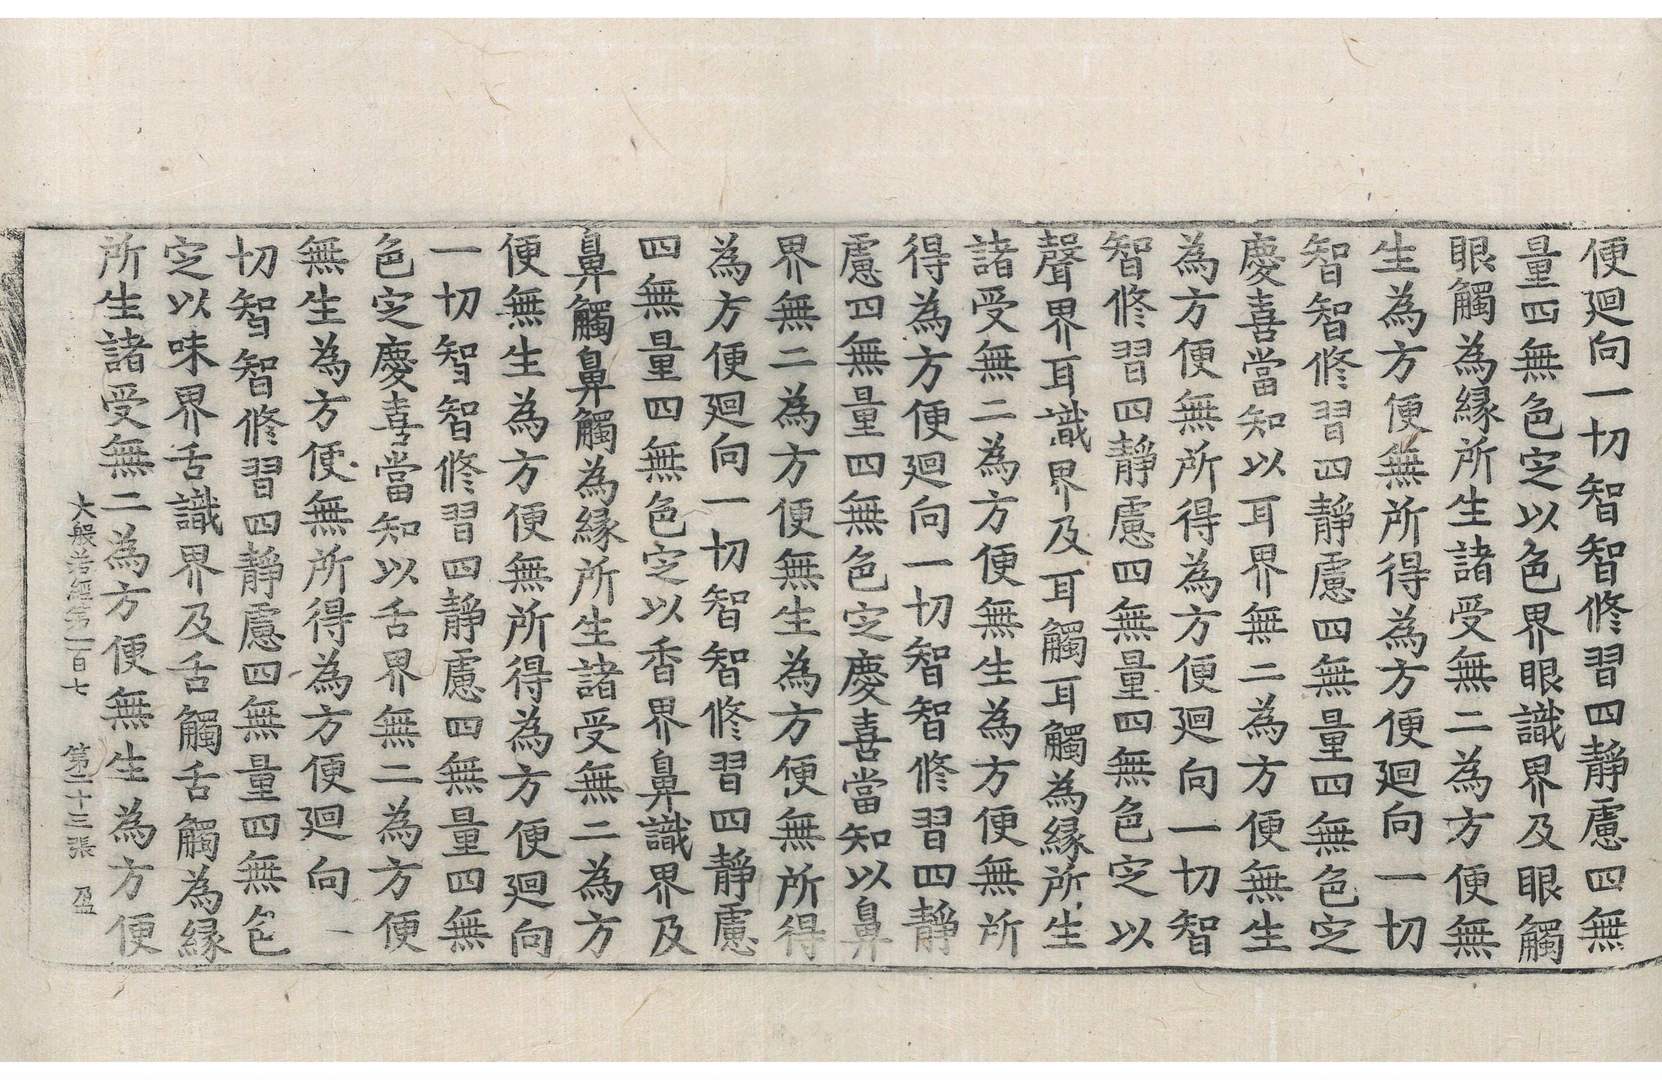 便廻向一切智智修習四靜慮四無
量四無色㝎以色界眼識界及眼觸
眼觸為縁所生諸受無二為方便無
生為方便無所得為方便廻向一切
智智修習四靜慮四無量四無色㝎
慶喜當知以耳界無二為方便無生
為方便無所得為方便廻向一切智
智修習四靜慮四無量四無色㝎以
聲界耳識界及耳觸耳觸為縁所生
諸受無二為方便無生為方便無所
得為方便廻向一切智智修習四靜
慮四無量四無色㝎慶喜當知以鼻
界無二為方便無生為方便無所得
為方便廻向一切智智修習四靜慮
四無量四無色㝎以香界鼻識界及
鼻觸鼻觸為縁所生諸受無二為方
便無生為方便無所得為方便廻向
一切智智修習四靜慮四無量四無
色㝎慶喜當知以舌界無二為方便
無生為方便無所得為方便廻向一
切智智修習四靜慮四無量四無色
㝎以味界舌識界及舌觸舌觸為縁
所生諸受無二為方便無生為方便
大般若經第一百七 第二十三張 盈